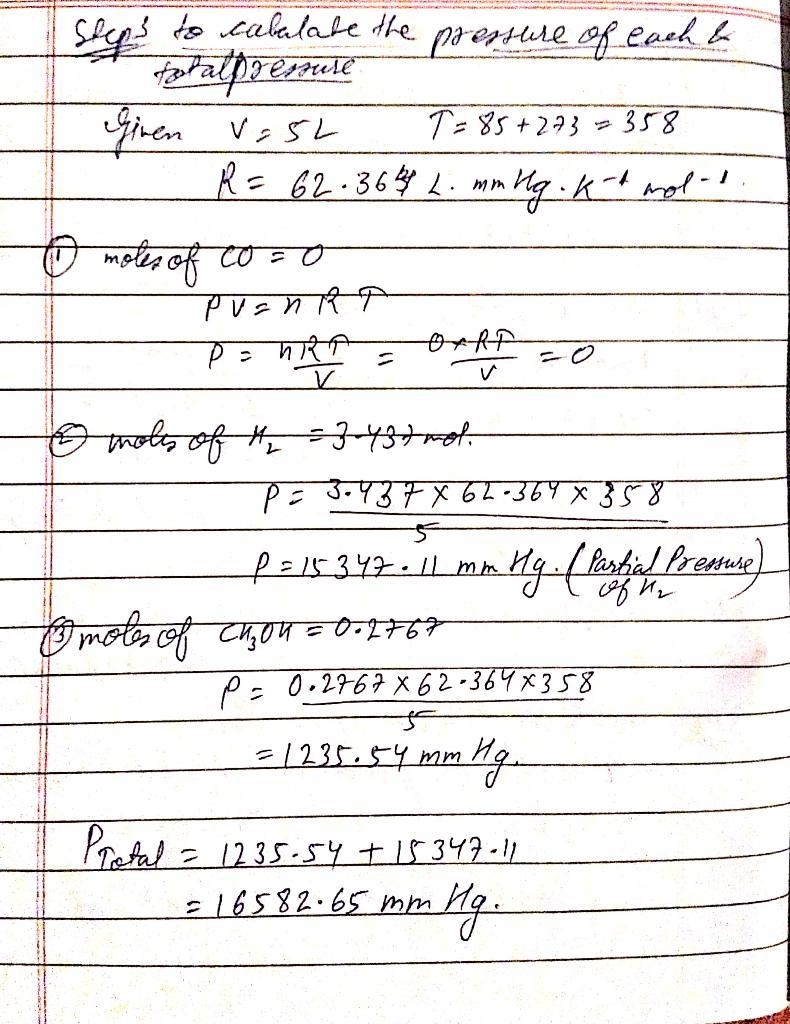 Steps to calculate the pressure of each &
total pressure
Given V = 5L T = 85 + 273 = 358
R = 62.364 L. mm Hg. K-1 mol-1.
① moles of CO = 0
PV = nRT
P = nRT/V = 0×RT/V = 0
② moles of H2 = 3.437 mol.
P = 3.437 × 62.364 × 358 / 5
P = 15347.11 mm Hg. (Partial Pressure of H2)
③ moles of CH3OH = 0.2767
P = 0.2767 × 62.364 × 358 / 5
= 1235.54 mm Hg.
PTotal = 1235.54 + 15347.11
= 16582.65 mm Hg.